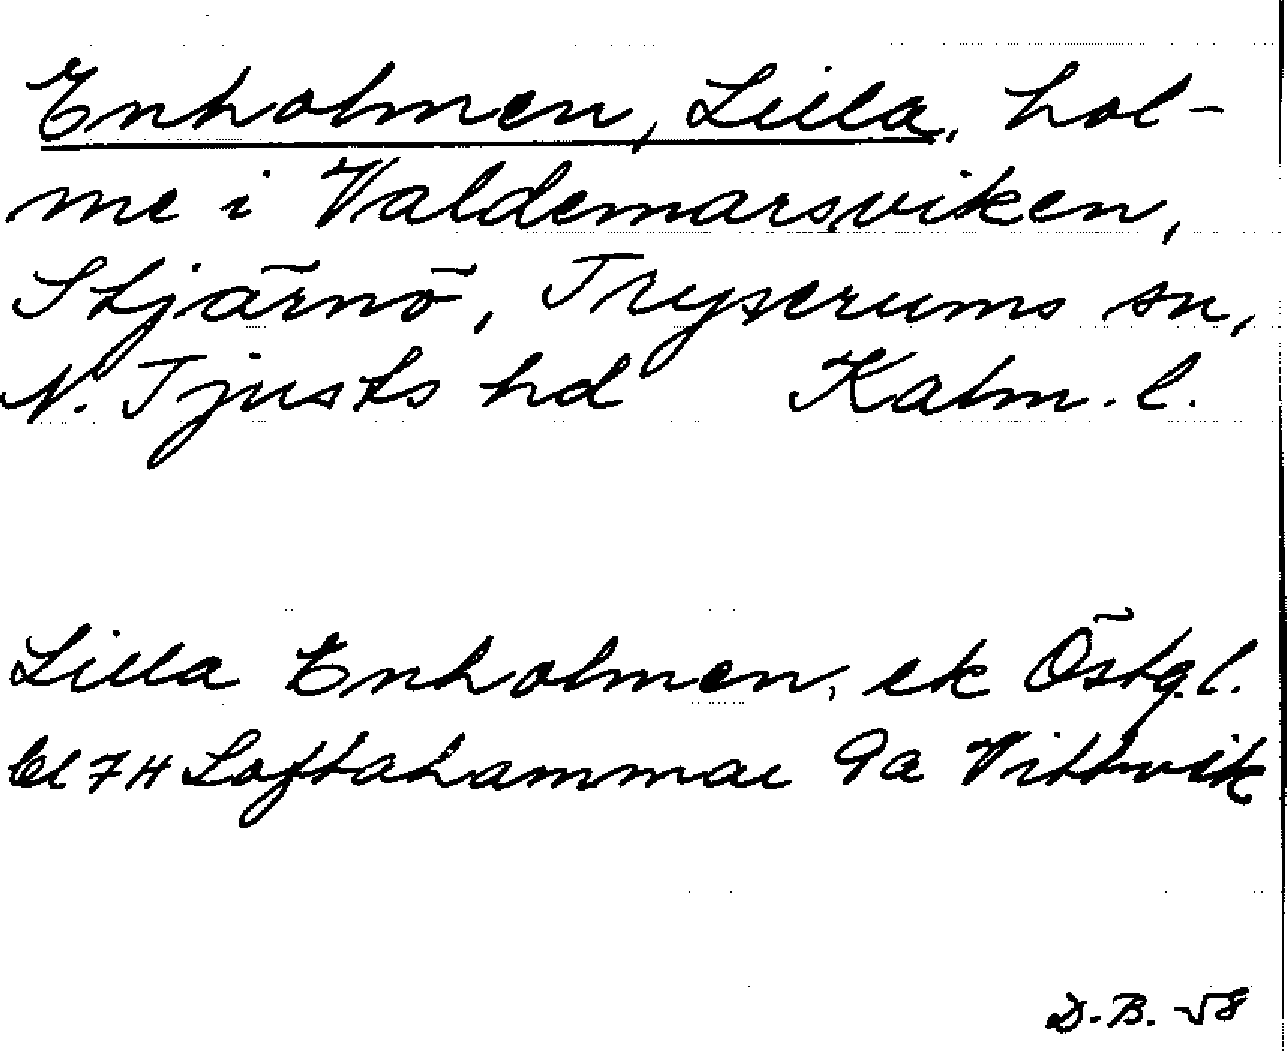 Enholmen, Lilla, hol-
me i Valdemarsviken,
Stjärnö, Tryserums sn,
N. Tjusts hd Kalm. l.
Lilla Enholmen, ek Östg.l.
bl 7H Loftahammar 9a Vittvik
D.B. -58